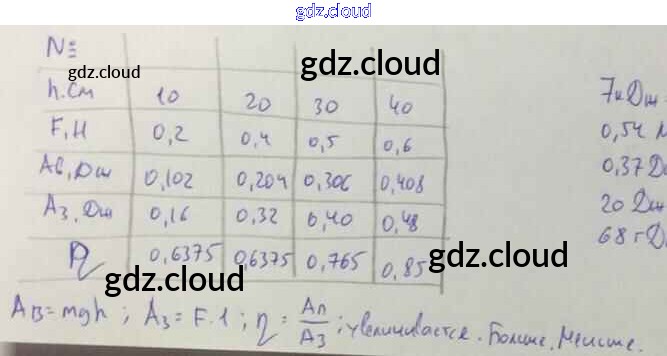 gdz.cloud
№
h.см 10 20 30 40
F,Н 0,2 0,4 0,5 0,6
Aв,Дж 0,102 0,204 0,306 0,408
Aз,Дж 0,16 0,32 0,40 0,48
η 0,6375 0,6375 0,765 0,85
Aв=mgh; Aз=F.l; η = Aп/Aз; увеличивается. Больше. Меньше.
7кДж
0,54 м
0,37 Д
20 Дж
68 гД
gdz.cloud
gdz.cloud
gdz.cloud
gdz.cloud